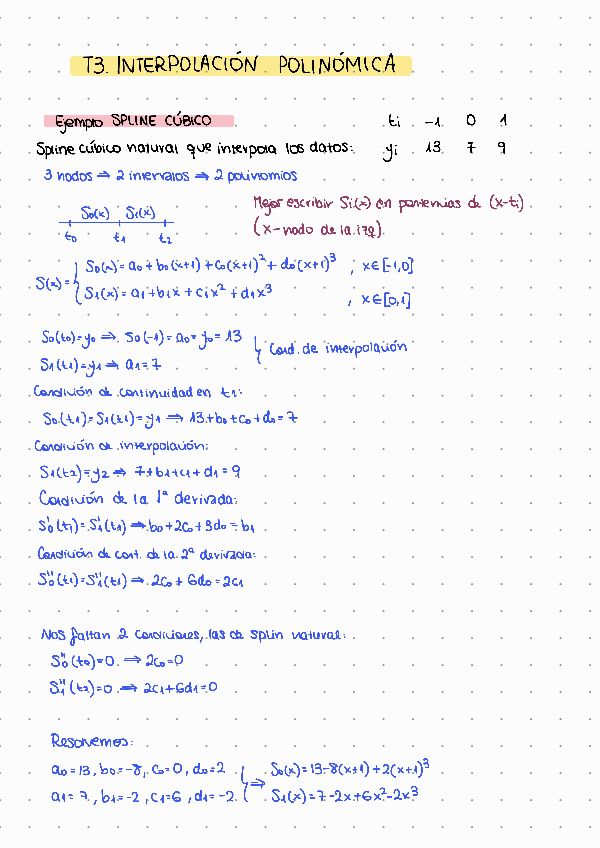 T3. INTERPOLACIÓN POLINÓMICA
Ejemplo SPLINE CÚBICO ti -1 0 1
Spline cúbico natural que interpola los datos: yi 13 7 9
3 nodos ⇒ 2 intervalos ⇒ 2 polinomios
Mejor escribir Si(x) en potencias de (x-ti)
(x-nodo de la izq).
S0(x) S1(x)
t0 t1 t2
S(x)= { S0(x)= a0 + b0(x+1) + c0(x+1)² + d0(x+1)³ ; x∈[-1,0]
S1(x)= a1+b1x + c1x² + d1x³ , x∈[0,1]
S0(t0)=y0 ⇒ S0(-1)=a0=y0=13
S1(t1)=y1 ⇒ a1=7
Cond. de interpolación
Condición de continuidad en t1:
S0(t1)=S1(t1)=y1 ⇒ 13+b0+c0+d0=7
Condición de interpolación:
S1(t2)=y2 ⇒ 7+b1+c1+d1=9
Condición de la 1ª derivada:
S'0(t1)=S'1(t1) ⇒ b0+2c0+3d0=b1
Condición de cont. de la 2ª derivada:
S''0(t1)=S''1(t1) ⇒ 2c0+6d0=2c1
Nos faltan 2 condiciones, las de splin natural:
S''0(t0)=0 ⇒ 2c0=0
S''1(t2)=0 ⇒ 2c1+6d1=0
Resolvemos:
a0=13, b0=-8, c0=0, d0=2 } ⇒ S0(x)=13-8(x+1)+2(x+1)³
a1=7, b1=-2, c1=6, d1=-2 S1(x)=7-2x+6x²-2x³